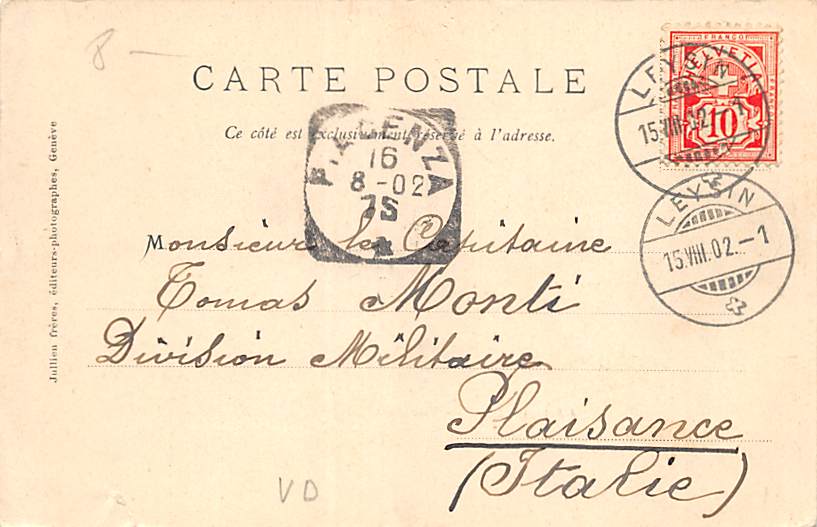 8 -
CARTE POSTALE
Ce côté est exclusivement réservé à l'adresse.
FRANCO
HELVETIA
10
LEYSIN
15.VIII.02.-1
LEYSIN
15.VIII.02.-1
PIACENZA
16
8-02
7S
Monsieur le Capitaine
Tomas Monti
Division Militaire
Plaisance
(Italie)
Jullien frères, éditeurs-photographes, Genève
VD